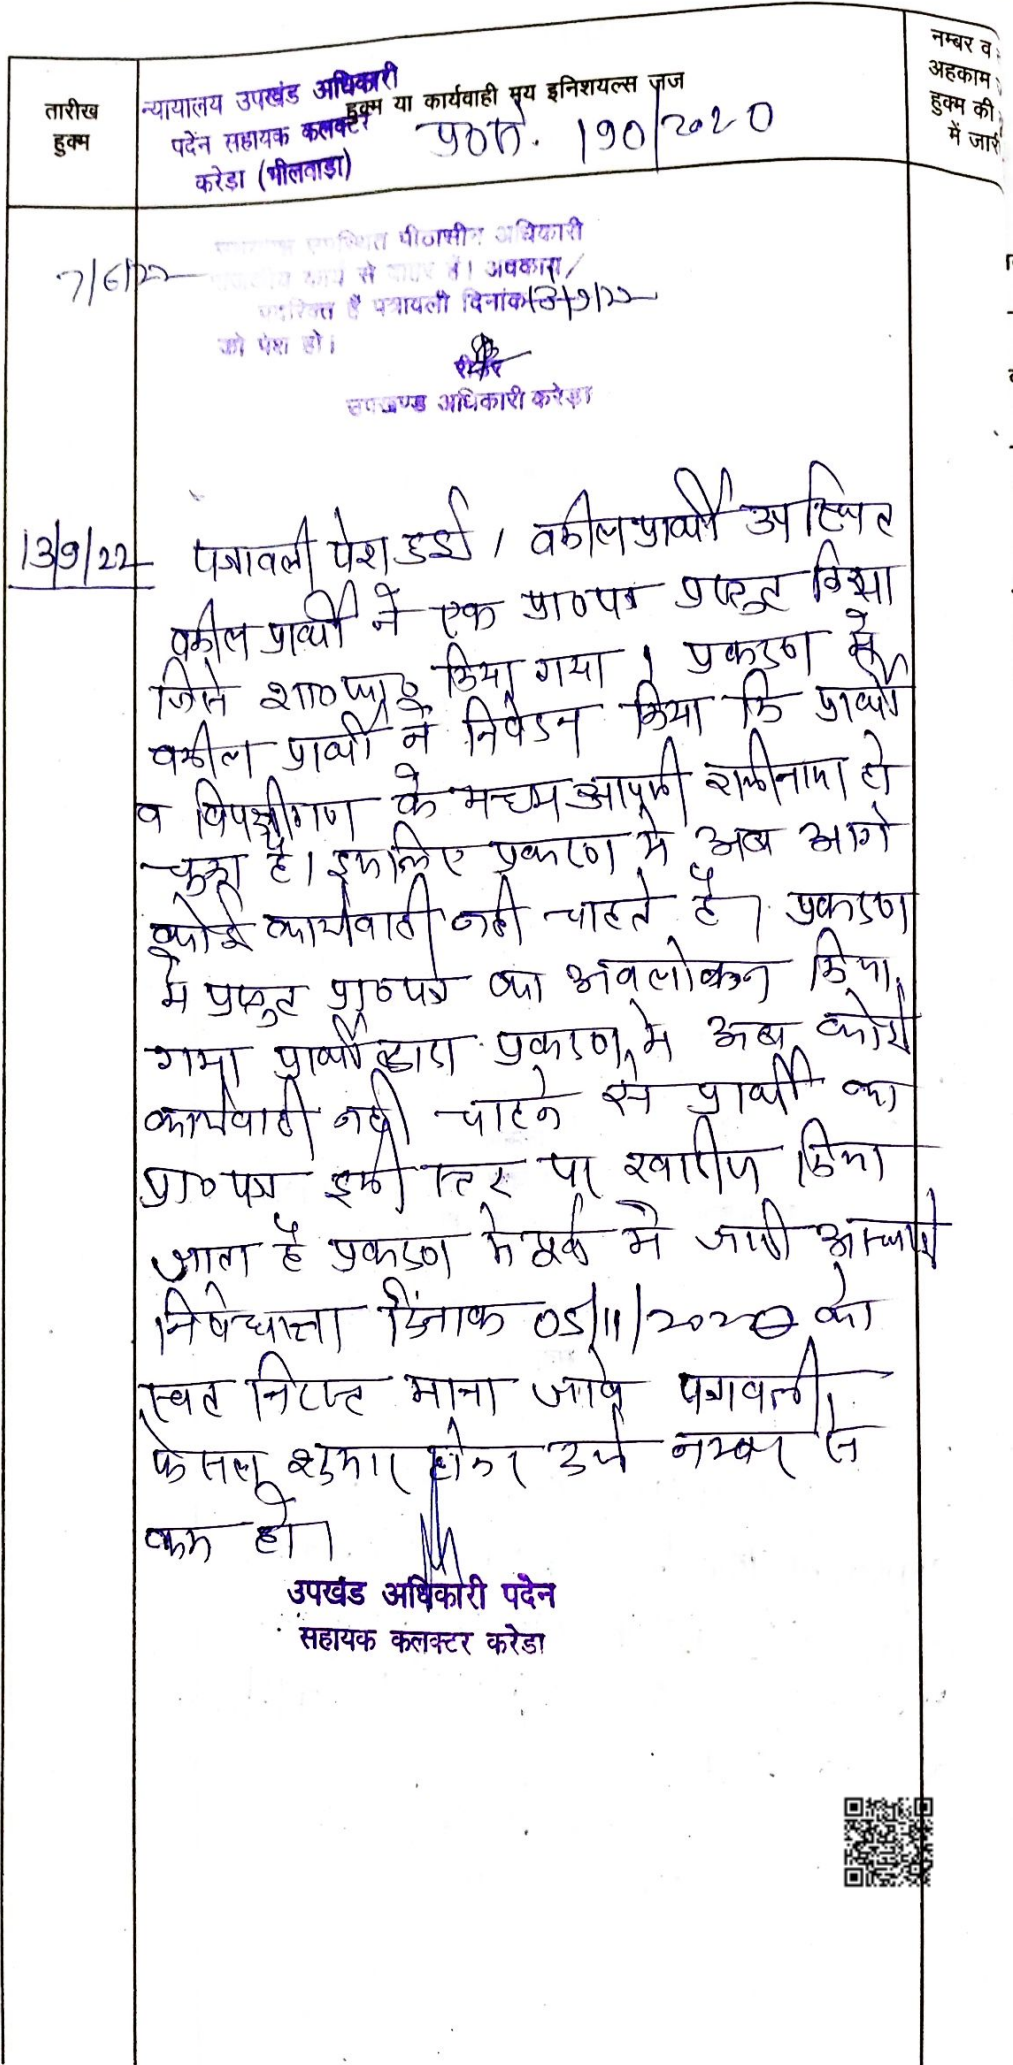 तारीख
हुक्म
न्यायालय उपखंड अधिकारी
हुक्म या कार्यवाही मय इनिशयल्स जज
पदेंन सहायक कलक्टर
करेड़ा (भीलवाडा)
प्र०सं. 190/2020
नम्बर व
अहकाम
हुक्म की
में जारी
7/6/22
पीठासीन अधिकारी
कार्य से बाहर है। अवकाश/
रिक्त है पत्रावली दिनांक 13/9/22
को पेश हो।
रीडर
उपखण्ड अधिकारी करेड़ा
13/9/22
पत्रावली पेश हुई। वकील प्रार्थी उपस्थित
वकील प्रार्थी ने एक प्रा०पत्र प्रस्तुत किया
जिसे शा०फा० किया गया। प्रकरण में
वकील प्रार्थी ने निवेदन किया कि प्रार्थी
व विपक्षीगण के मध्य आपसी राजीनामा हो
चुका है। इसलिए प्रकरण में अब आगे
कोई कार्यवाही नही चाहते है। प्रकरण
मे प्रस्तुत प्रा०पत्र का अवलोकन किया
गया प्रार्थी द्वारा प्रकरण मे अब कोई
कार्यवाही नही चाहने से प्रार्थी का
प्रा०पत्र इसी स्तर पर खारीज किया
जाता है प्रकरण मे पूर्व मे जारी अस्थाई
निषेधाज्ञा दिनांक 05/11/2020 को
स्वत निरस्त माना जावे पत्रावली
फेसल शुमार होकर दर्ज नम्बर से
कम हो।
उपखंड अधिकारी पदेन
सहायक कलक्टर करेडा